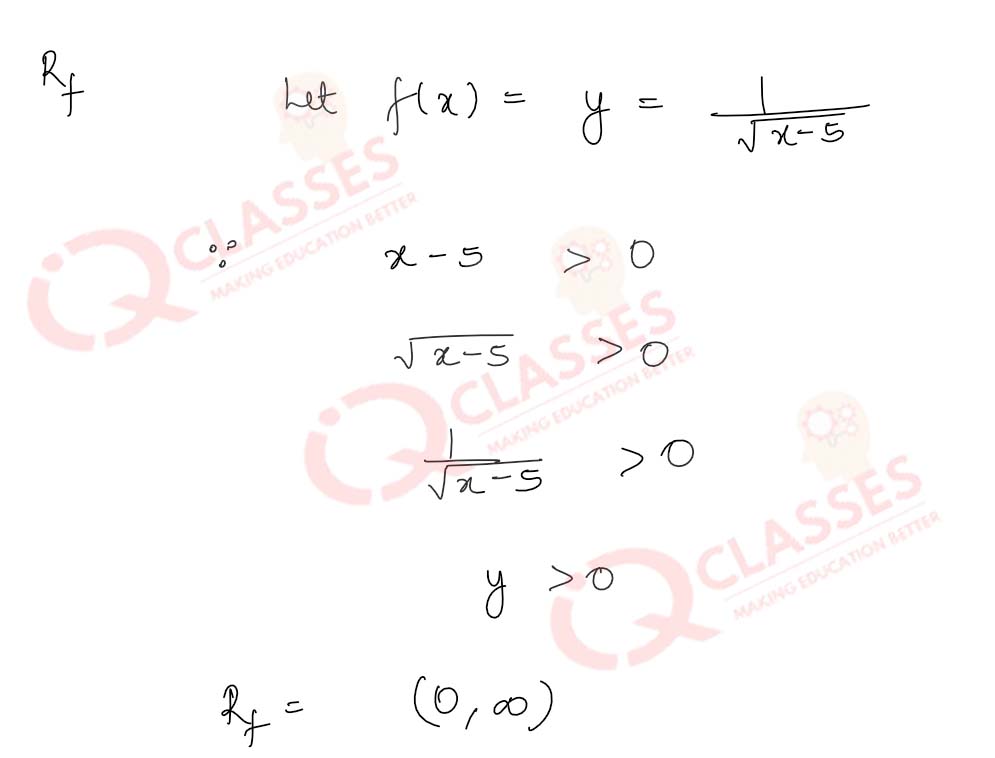 R_f Let f(x) = y = 1/√(x-5)
∵ x - 5 > 0
√(x-5) > 0
1/√(x-5) > 0
y > 0
R_f = (0, ∞)
iQ CLASSES
MAKING EDUCATION BETTER
iQ CLASSES
MAKING EDUCATION BETTER
iQ CLASSES
MAKING EDUCATION BETTER